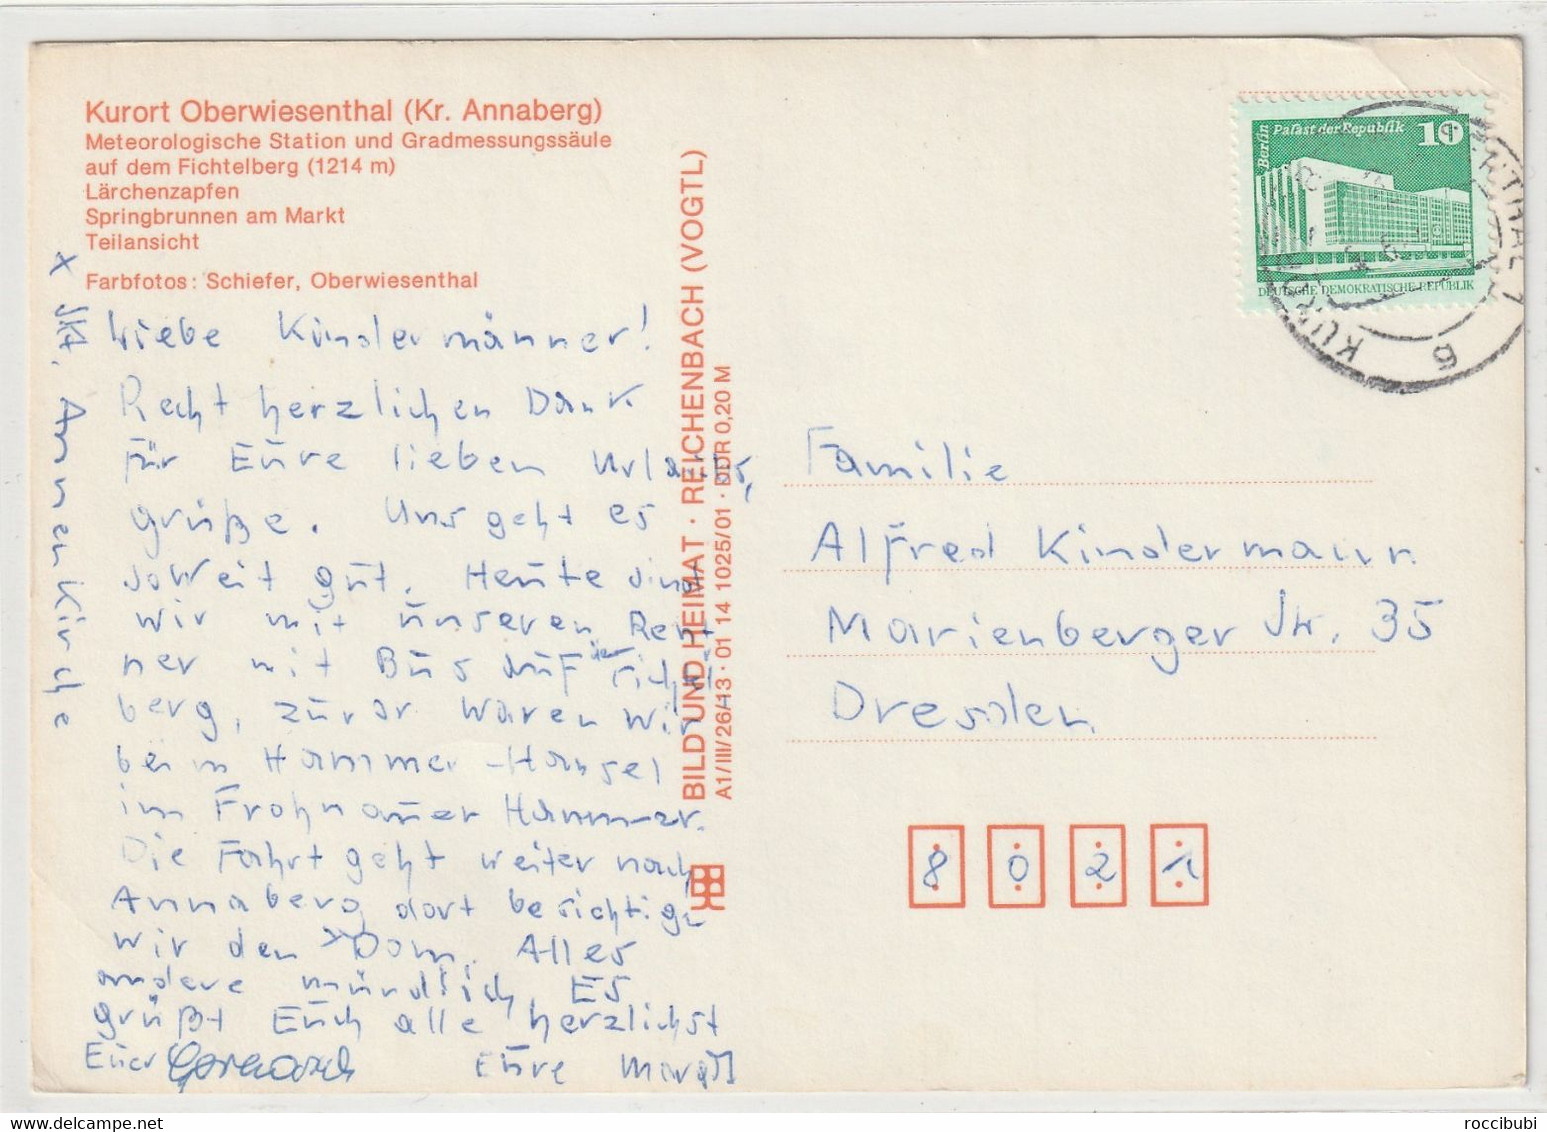 Kurort Oberwiesenthal (Kr. Annaberg)
Meteorologische Station und Gradmessungssäule
auf dem Fichtelberg (1214 m)
Lärchenzapfen
Springbrunnen am Markt
Teilansicht
Farbfotos: Schiefer, Oberwiesenthal
Liebe Kindermänner!
Recht herzlichen Dank
für Eure lieben Urlaubs,
grüße. Uns geht es
soweit gut. Heute sind
wir mit unseren Rent
ner mit Bus auf den Fichtel
berg, zuvor waren wir
beim Hammer-Hansel
im Frohnauer Hammer.
Die Fahrt geht weiter nach
Annaberg dort besichtigen
wir den x Dom. Alles
andere mündlich. Es
grüßt Euch alle herzlichst
Euer Eure
x Skt. Annenkirche
BILD UND HEIMAT · REICHENBACH (VOGTL)
A1/III/26/13 · 01 14 1025/01 · DDR 0,20 M
Berlin Palast der Republik 10
DEUTSCHE DEMOKRATISCHE REPUBLIK
Familie
Alfred Kindermann
Marienberger Str. 35
Dresden
8 0 2 1
roccibubi